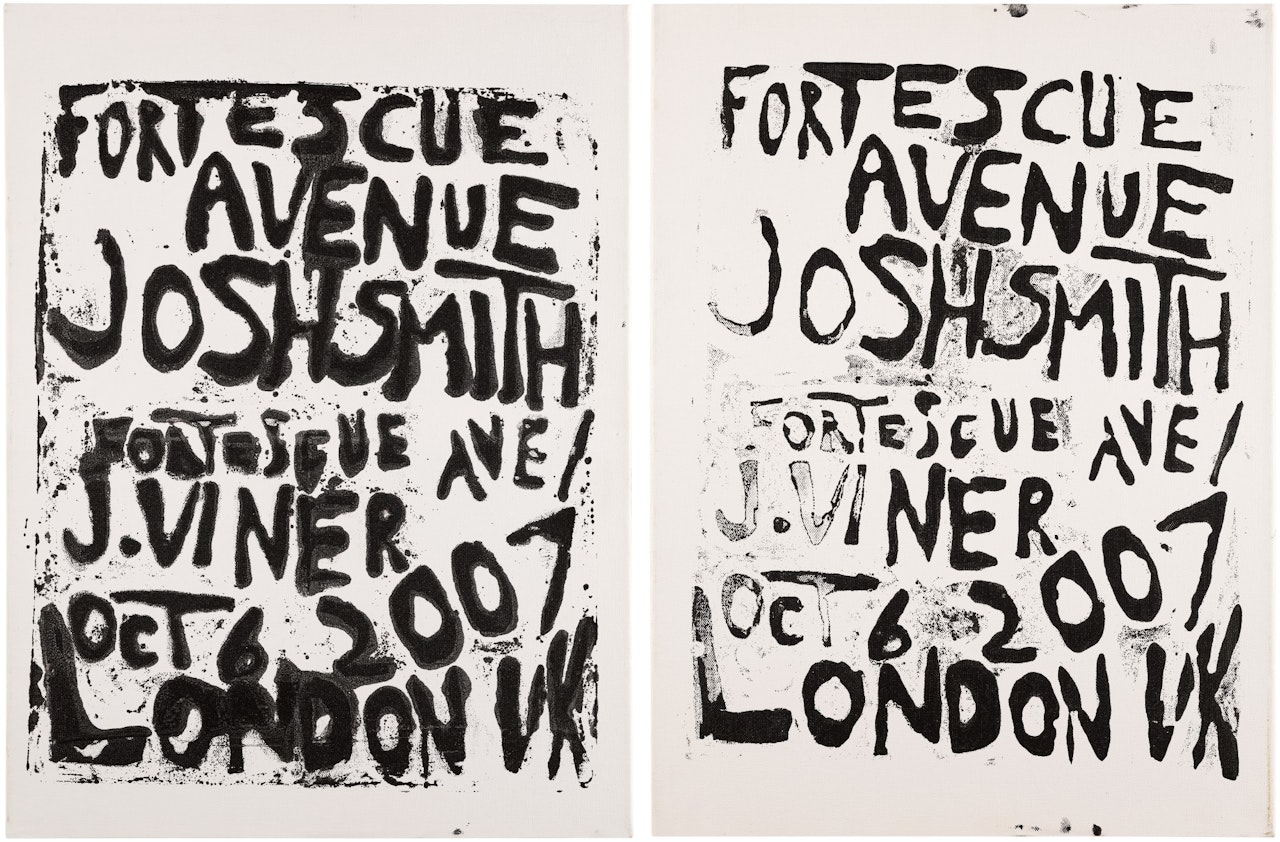 FORTESCUE
AVENUE
JOSH SMITH
FORTESCUE AVE/
J. VINER
OCT 6 2007
LONDON UK
FORTESCUE
AVENUE
JOSH SMITH
FORTESCUE AVE/
J. VINER
OCT 6 2007
LONDON UK